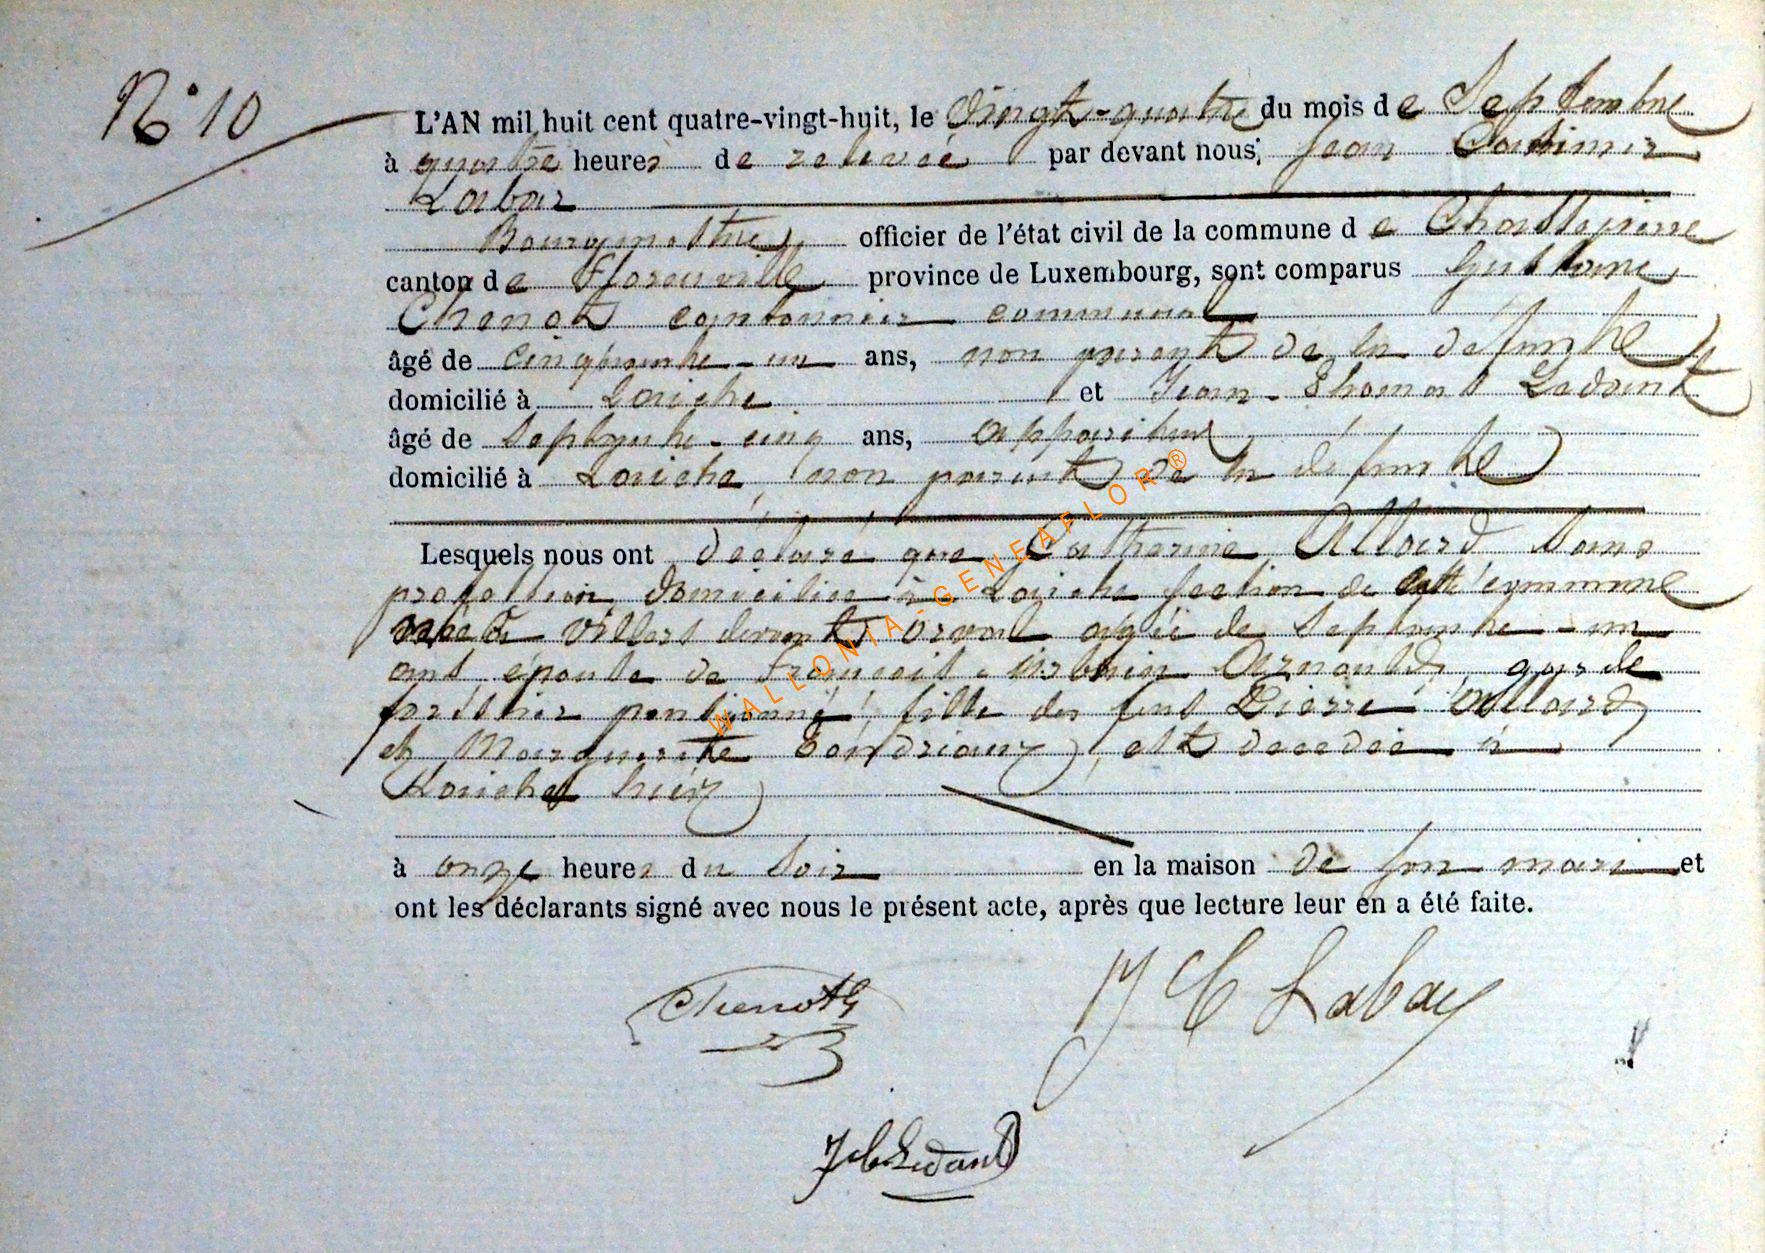 N° 10
L'AN mil huit cent quatre-vingt-huit, le vingt-quatre du mois de Septembre
à quatre heures de relevée par devant nous, Jean Casimir
Labar
Bourgmestre, officier de l'état civil de la commune de Chassepierre
canton de Florenville province de Luxembourg, sont comparus Gustave
Chenot cantonnier communal
âgé de cinquante-un ans, non parent de la défunte
domicilié à Laiche et Jean-Thomas Ledant
âgé de septante-cinq ans, appariteur
domicilié à Laiche, non parent de la défunte
Lesquels nous ont déclaré que Catherine Allard sans
profession domiciliée à Laiche section de cette commune
née à Villers devant Orval agée de septante-un
ans, épouse de François Urbain Arnould, garde
forestier pensionné, fille des feus Pierre Allard
et Marguerite, est décédée à
Laiche hier
à onze heures du soir en la maison de son mari et
ont les déclarants signé avec nous le présent acte, après que lecture leur en a été faite.
Chenot J C Labar
Ledant
WALLONIA-GENEAFLOR®